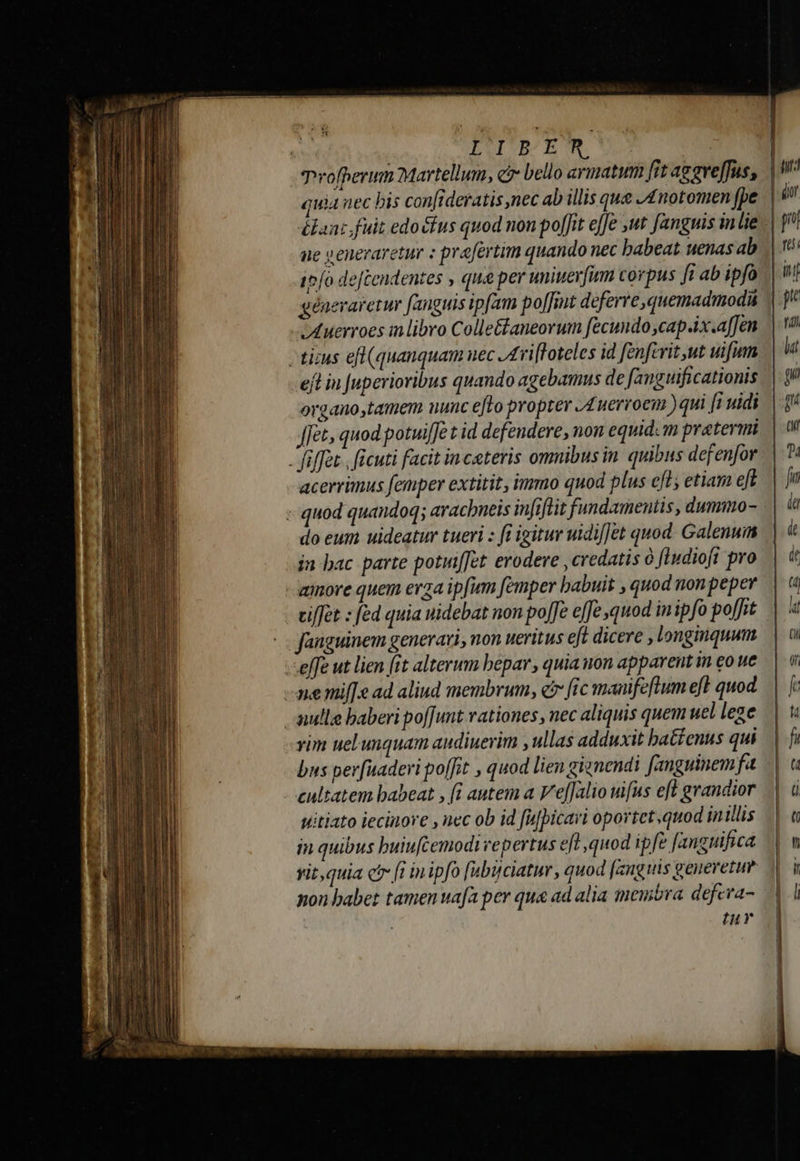 LIBER
Prosperum Martellum, & bello armatum sit aggressus,
quia nec his consideratis, nec ab illis quæ Anotomen spe
ctant, fuit edoctus quod non possit esse, ut sanguis in lie
ne generaretur : præsertim quando nec habeat uenas ab
ipso descendentes, quæ per uniuersum corpus si ab ipso
generaretur sanguis ipsam possint deferre, quemadmodũ
Auerroes in libro Collectaneorum secundo, cap.ix. assen
tius est (quanquam nec Aristoteles id senserit, ut uisum
est in superioribus quando agebamus de sanguificationis
organo, tamem nunc esto propter Auerroem) qui si uidi
sset, quod potuisset id defendere, non equidem prætermi
sisset, sicuti facit in cæteris omnibus in quibus defensor
acerrimus semper extitit, immo quod plus est, etiam est
quod quandoq; arachneis insistit fundamentis, dummo-
do eum uideatur tueri : si igitur uidisset quod Galenum
in hac parte potuisset erodere, credatis ò studiosi pro
amore quem erga ipsum semper habuit, quod non peper
cisset : sed quia uidebat non posse esse, quod in ipso possit
sanguinem generari, non ueritus est dicere, longinquum
esse ut lien sit alterum hepar, quia non apparent in eo ue
næ missæ ad aliud membrum, & sic manifestum est quod
nullæ haberi possunt rationes, nec aliquis quem uel lege
rim uel unquam audiuerim, ullas adduxit hactenus qui
bus persuaderi possit, quod lien gignendi sanguinem fa
cultatem habeat, si autem a Vessalio uisus est grandior
uitiato iecinore, nec ob id suspicari oportet, quod in illis
in quibus huiuscemodi repertus est, quod ipse sanguifica
rit, quia & si in ipso subijciatur, quod sanguis generetur
non habet tamen uasa per quæ ad alia membra defera-
tur